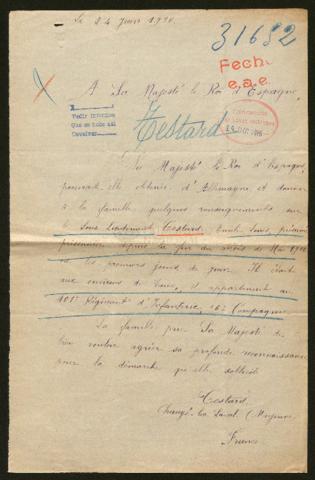 Le 24 Juin 1918.
31682
Fecha
e.a.e.
A Sa Majesté le Roi d'Espagne,
Pedir informes
que se debe así
Testard
Sa Majesté le Roi d'Espagne
pourrait-elle obtenir d'Allemagne et donner
à la famille quelques renseignements sur
le Sous Lieutenant Testard, prisonnier
depuis la fin du mois de Mai
ou les premiers jours de juin. Il était
aux environs de et appartenait au
101e Régiment d'Infanterie, 16e Compagnie.
La famille prie Sa Majesté de
bien vouloir agréer sa profonde reconnaissance
pour la démarche qu'elle sollicite
Testard,
Changé-les-Laval (Mayenne)
France